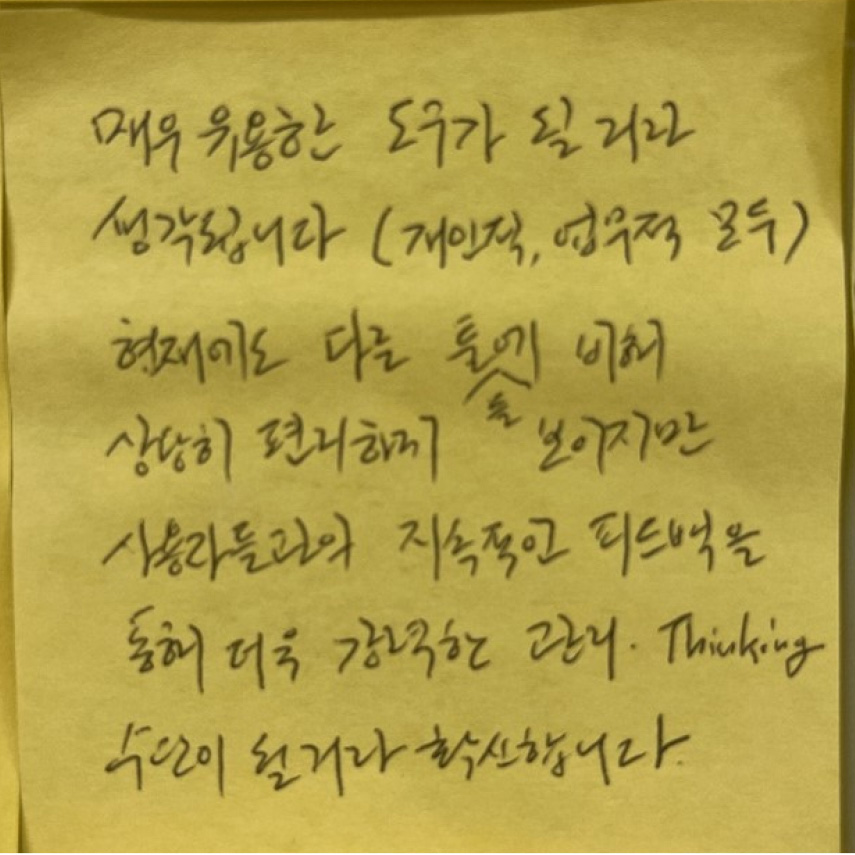 매우 유용한 도구가 될 거라
생각됩니다 (개인적, 업무적 모두)
현재에도 다른 툴들에 비해
상당히 편리하게 보여지지만
사용자들과의 지속적인 피드백을
통해 더욱 강력한 관리. Thinking
수단이 될거라 확신합니다.